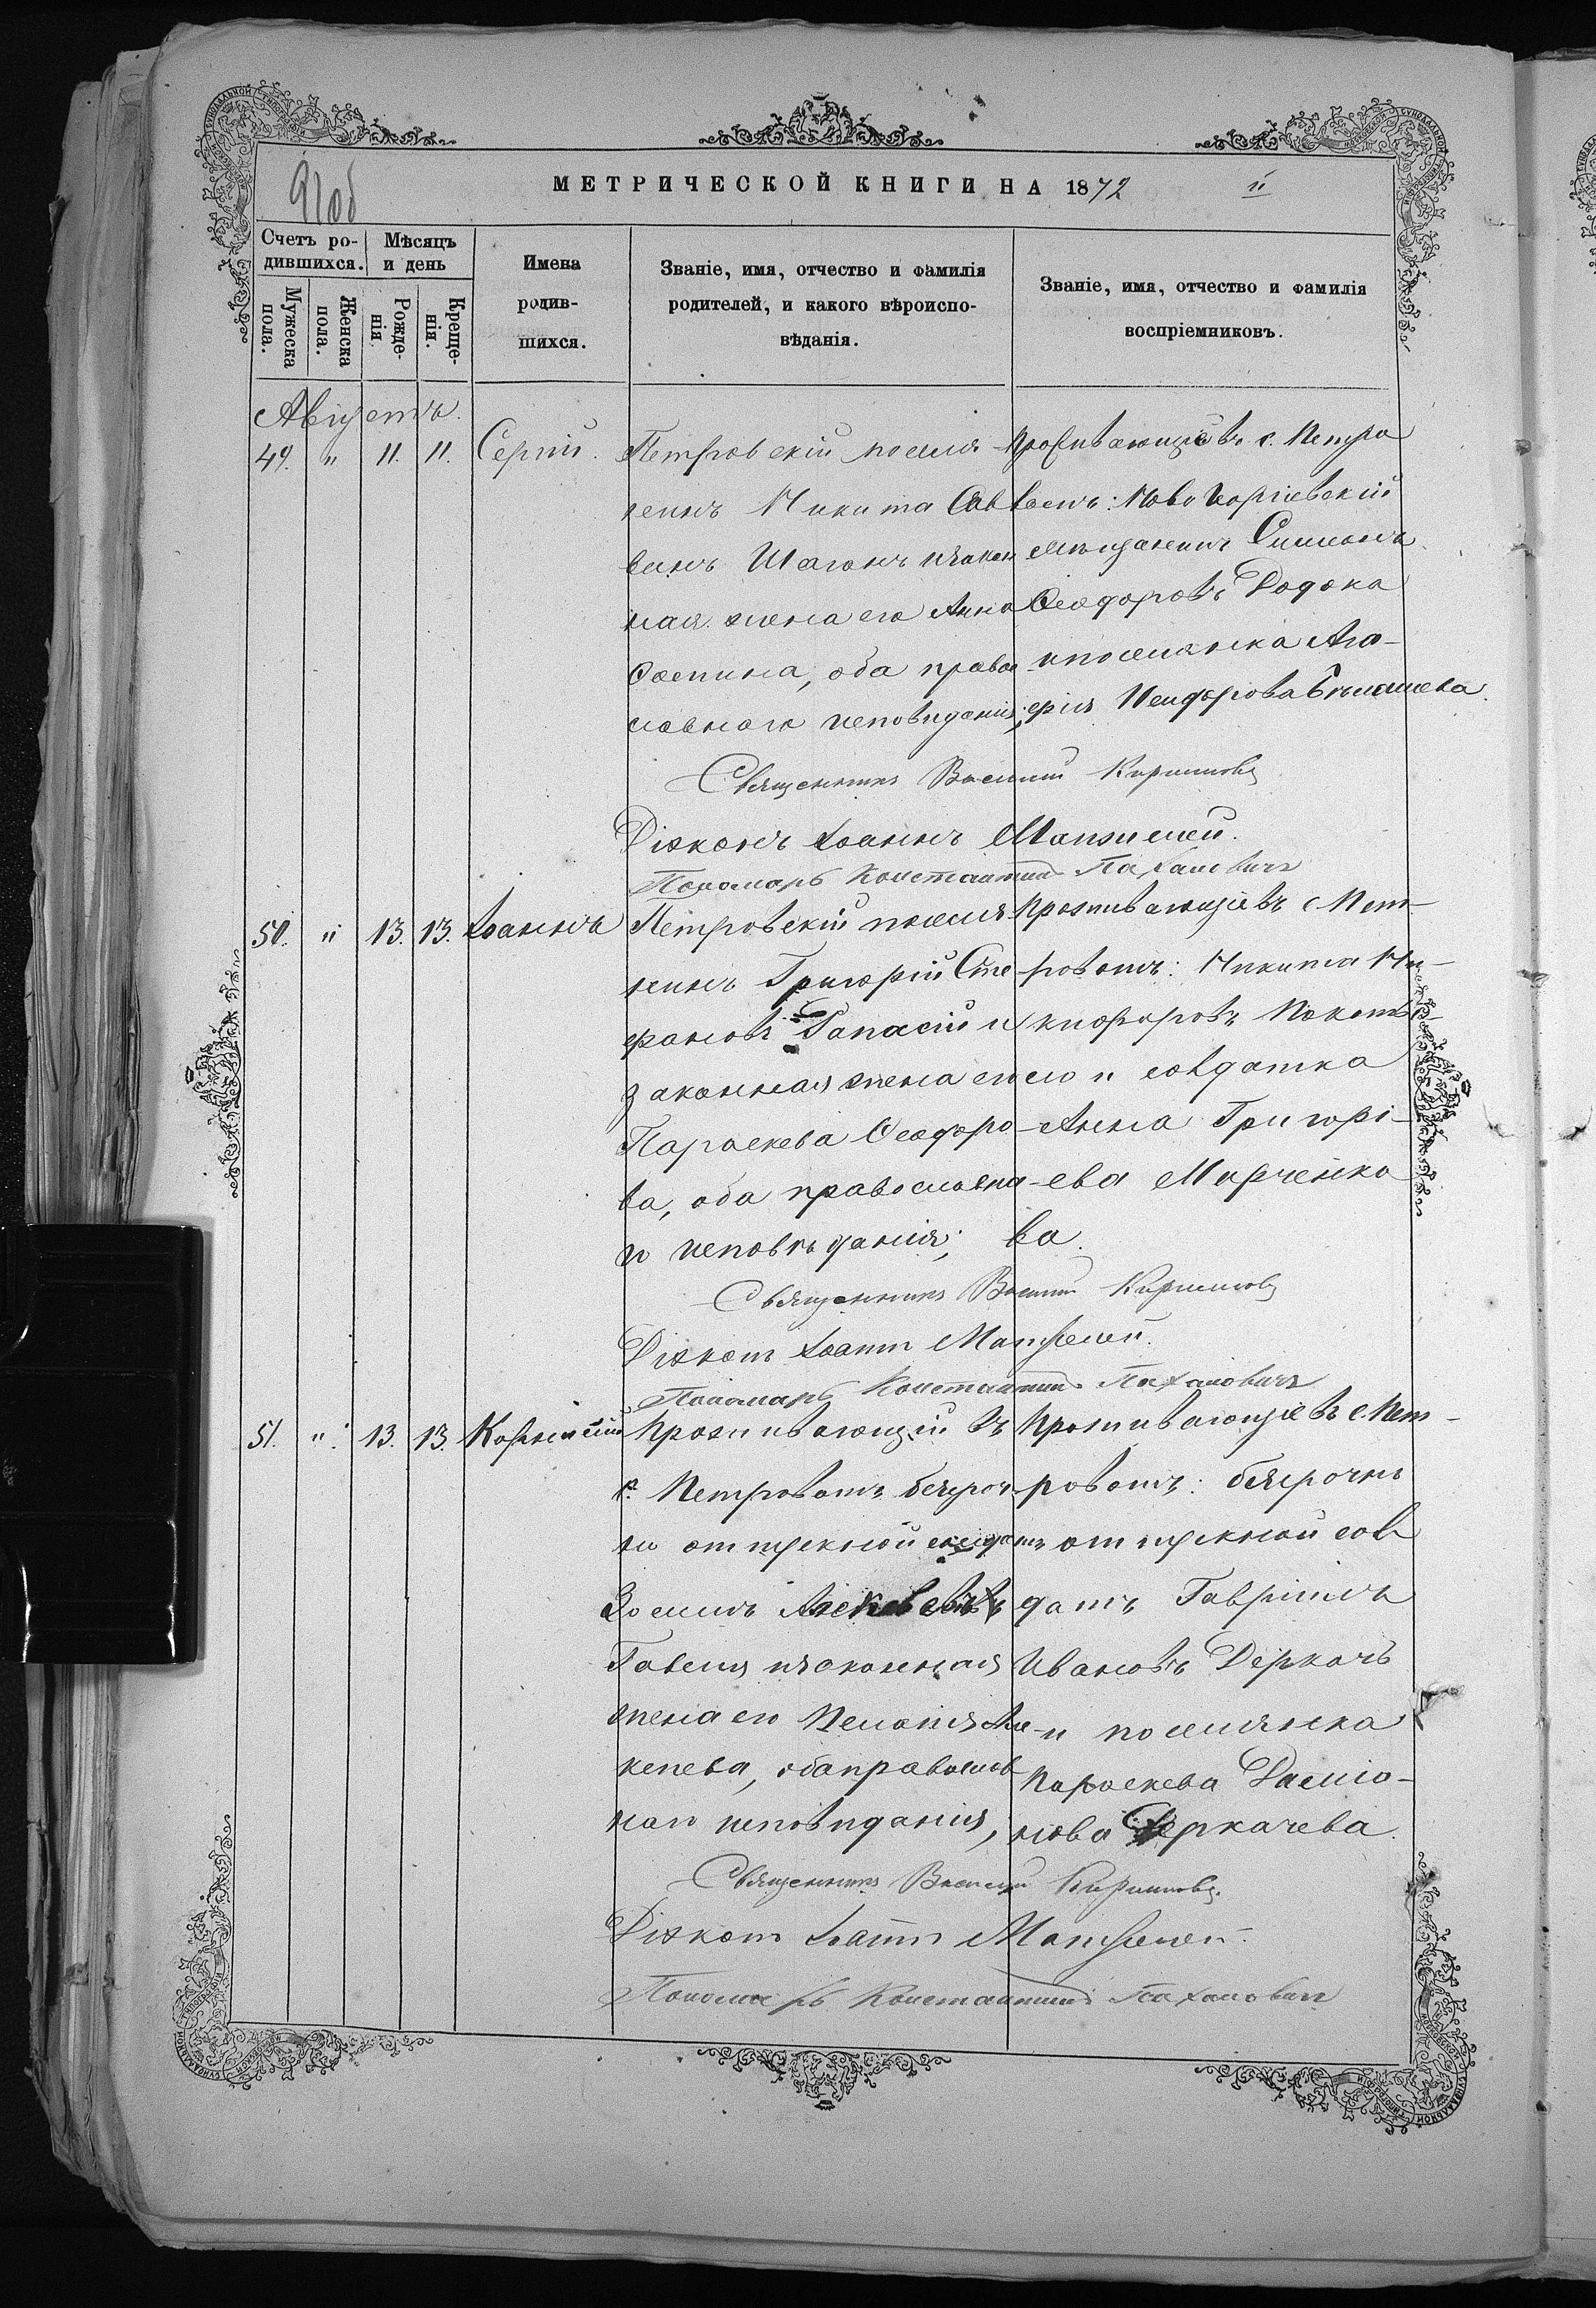 91об
МЕТРИЧЕСКОЙ КНИГИ НА 1872
Счетъ ро-
дившихся.
Мѣсяцъ
и день
Мужеска
пола.
Женска
пола.
Рожде-
нія
Креще-
нія.
Имена
родив-
шихся.
Званіе, имя, отчество и фамилія
родителей, и какого вѣроиспо-
вѣданія.
Званіе, имя, отчество и фамилія
воспріемниковъ.
Августъ.
49. " 11. 11. Сергій.
Петровскій поселя-
нинъ Никита Сав
винъ изакон
ная жена его Анна
Осипина, оба правос
лавнаго исповѣданія;
Проживающіе въ с. Петро
вомъ: Новогеоргіевскій
мѣщанинъ Симеонъ
Ѳеодоровъ
ипоселянка Ага-
фія
Священникъ Василій Кириловъ
Діаконъ Іоаннъ
Пономарь Константинъ Пахаловичъ
50. " 13. 13. Іоаннъ
Петровскій поселя
нинъ Григорій Сте
фановъ и
законная жена его
Параскева Ѳеодоро
ва, оба православна
го исповѣданія;
Проживающіе въ с Пет-
ровомъ: Никита Ни-
кифоровъ
и солдатка
Анна Григорі-
ева Марченко
ва.
Священникъ Василій Кириловъ
Діаконъ Іоаннъ
Пономарь Константинъ Пахаловичъ
51. " 13. 13. Корнилій
Проживающій въ
с. Петровомъ безсроч-
но отпускной солдатъ
Гавеля изаконная
жена его Пелагія
оба православ
наго исповѣданія;
Проживающіе въ с. Пет-
ровомъ: безсрочно
отпускной сол
датъ Гавріилъ
Ивановъ Деркачъ
и поселянка
Параскева Даміа-
нова Деркачева.
Священникъ Василій Кириловъ.
Діаконъ Іоаннъ
Пономарь Константинъ Пахаловичъ